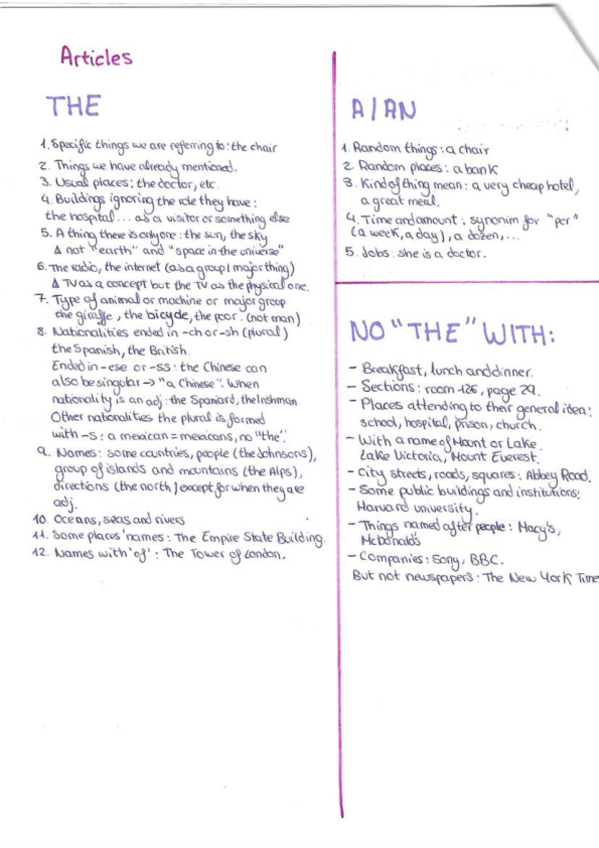 Articles
THE
1. Specific things we are referring to: the chair
2. Things we have already mentioned.
3. Usual places: the doctor, etc.
4. Buildings ignoring the role they have:
the hospital... as a visitor or something else
5. A thing there is only one: the sun, the sky
Δ not "earth" and "space in the universe"
6. The radio, the internet (as a group/major thing)
Δ TV as a concept but the TV as the physical one.
7. Type of animal or machine or major group
the giraffe, the bicycle, the poor. (not man)
8. Nationalities ended in -ch or -sh (plural)
the Spanish, the British.
Ended in -ese or -ss: the Chinese can
also be singular → "a Chinese". When
nationality is an adj: the Spaniard, the Irishman
Other nationalities the plural is formed
with -s: a mexican = mexicans, no "the".
9. Names: some countries, people (the Johnsons),
group of islands and mountains (the Alps),
directions (the north) except for when they are
adj.
10. Oceans, seas and rivers
11. Some places' names: The Empire State Building.
12. Names with 'of': The Tower of London.
A/AN
1. Random things: a chair
2. Random places: a bank
3. Kind of thing mean: a very cheap hotel,
a great meal.
4. Time and amount: synonim for "per"
(a week, a day), a dozen,...
5. Jobs: she is a doctor.
NO "THE" WITH:
- Breakfast, lunch and dinner.
- Sections: room 126, page 29.
- Places attending to their general idea:
school, hospital, prison, church.
- With a name of Mount or Lake.
Lake Victoria, Mount Everest.
- City streets, roads, squares: Abbey Road.
- Some public buildings and institutions:
Harvard university.
- Things named after people: Macy's,
McDonald's
- Companies: Sony, BBC.
But not newspapers: The New York Time